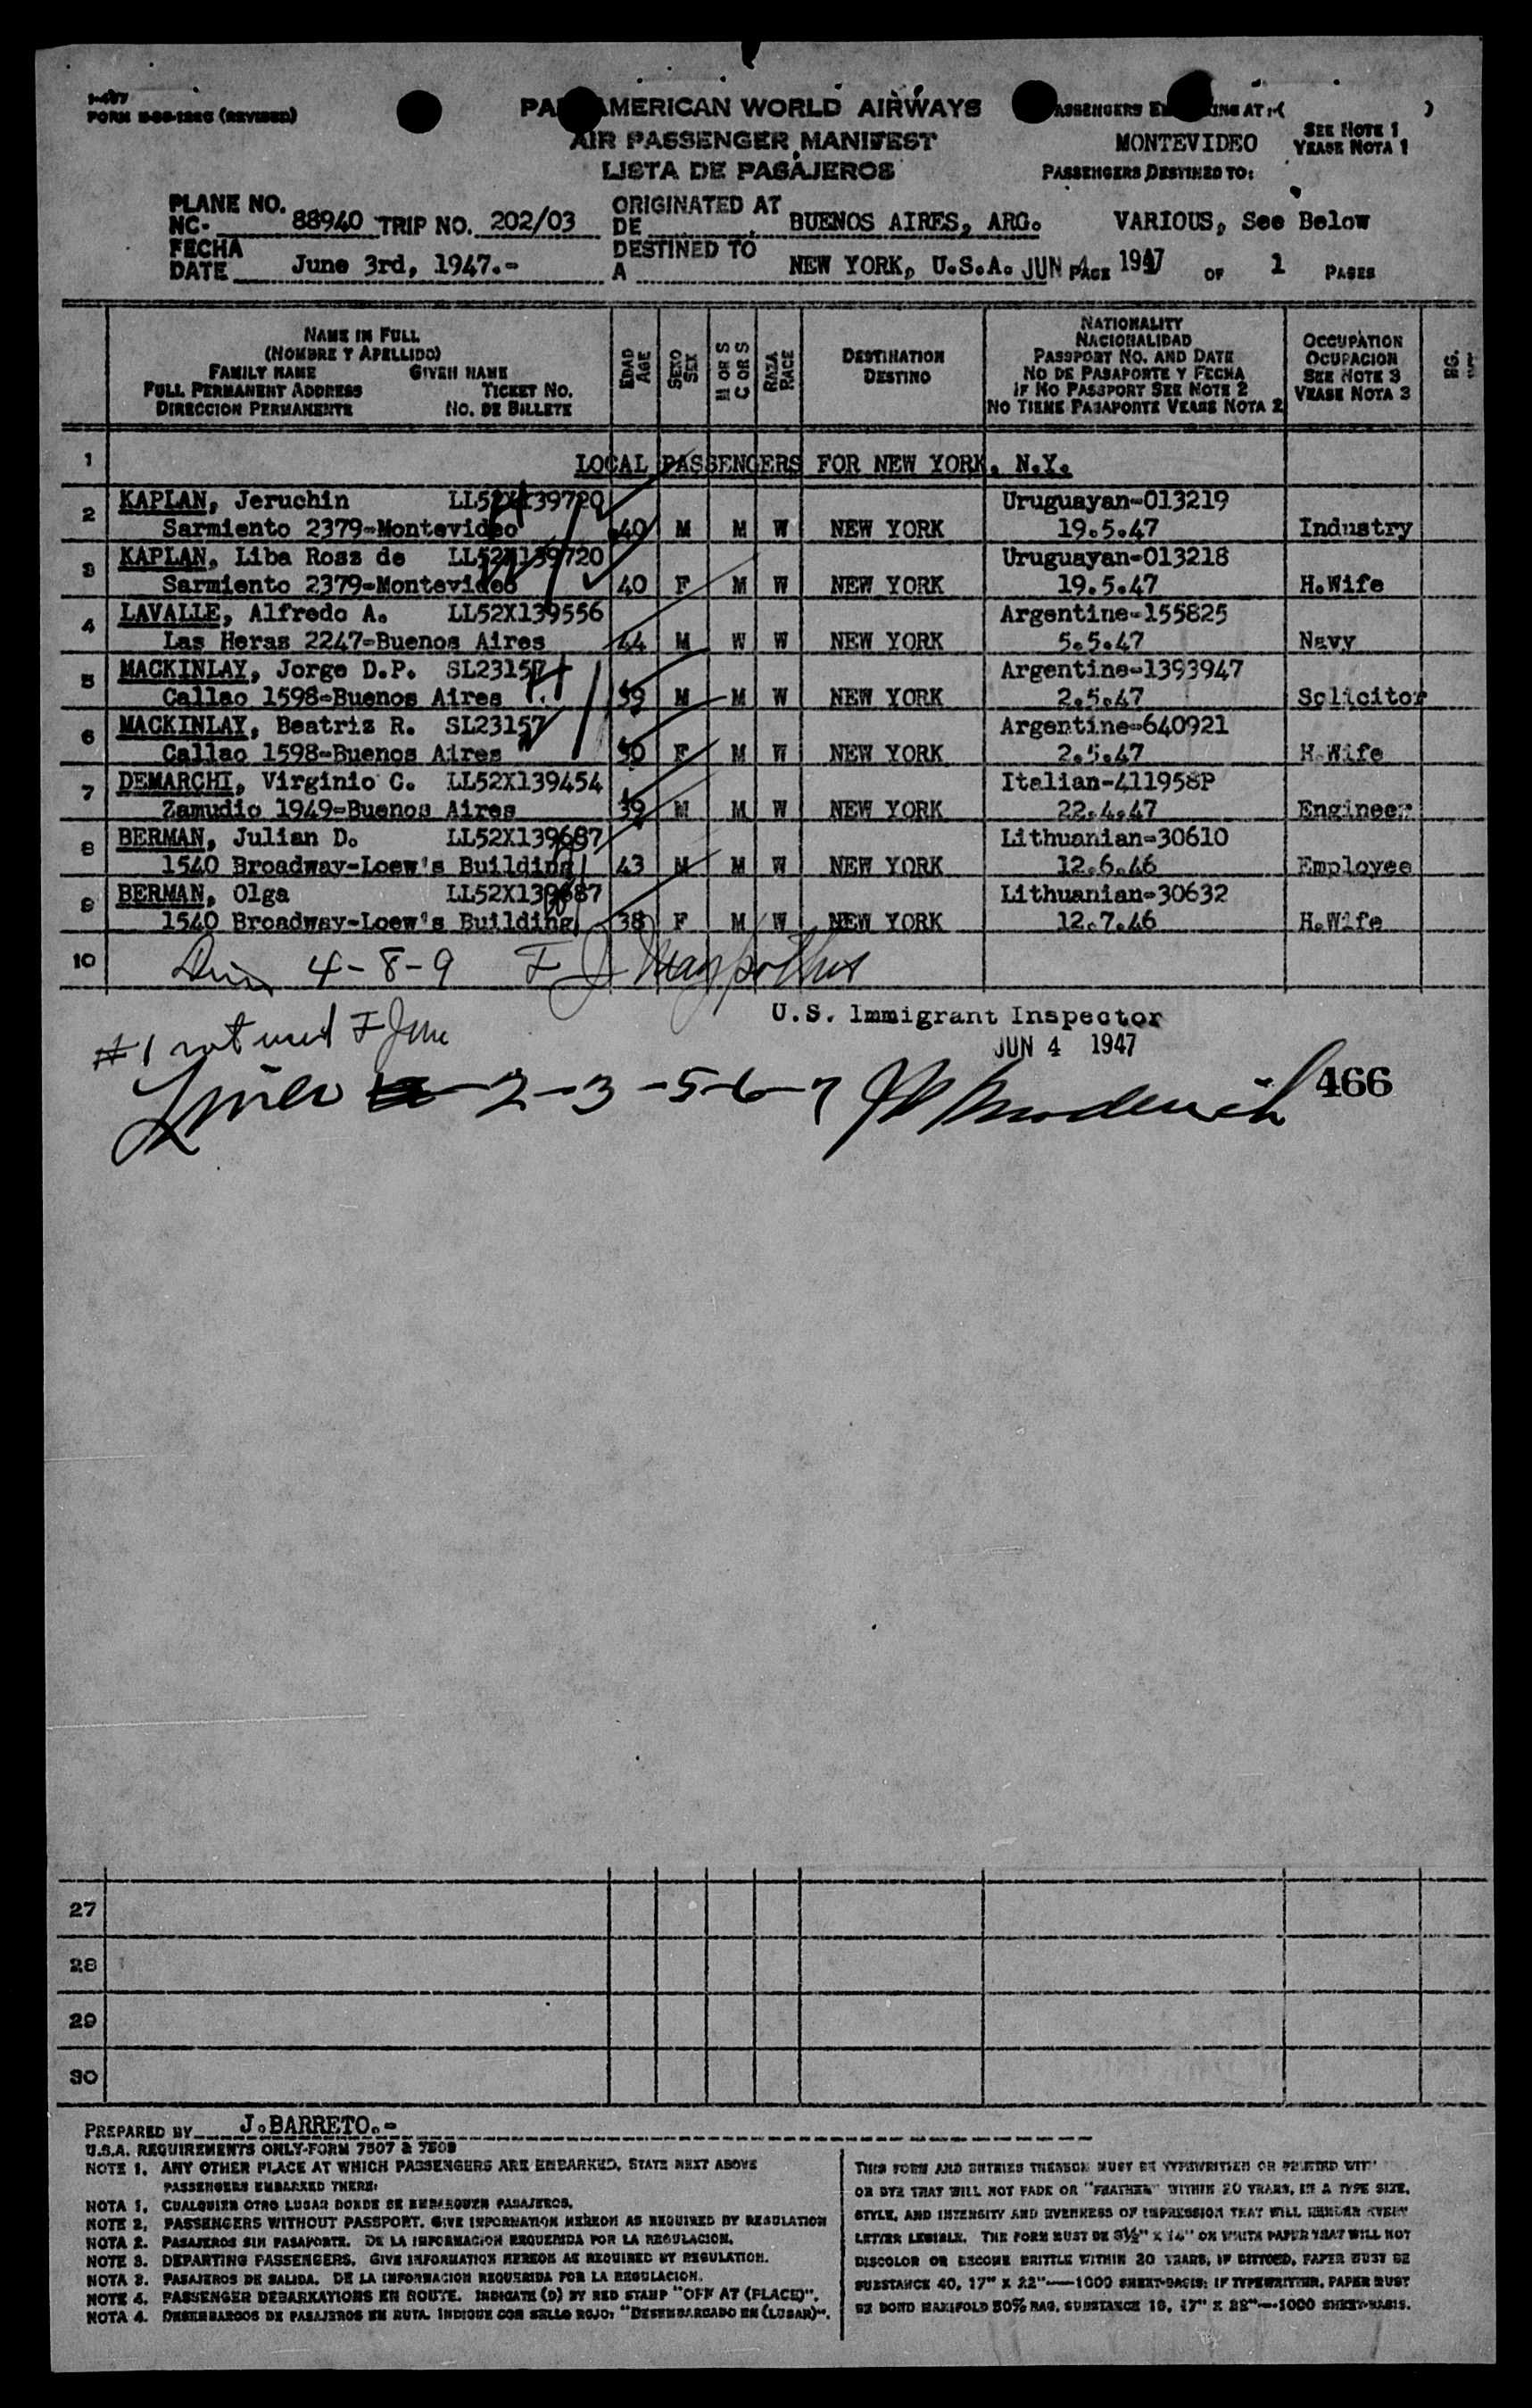 I-487
FORM (REVISED)
PAN AMERICAN WORLD AIRWAYS
AIR PASSENGER MANIFEST
LISTA DE PASAJEROS
PASSENGERS EMBARKING AT :-( )
MONTEVIDEO
SEE NOTE 1
VEASE NOTA 1
PASSENGERS DESTINED TO:
VARIOUS, See Below
PLANE NO.
NC- 88940 TRIP NO. 202/03
ORIGINATED AT
DE BUENOS AIRES, ARG.
FECHA
DATE June 3rd, 1947.-
DESTINED TO
A NEW YORK, U.S.A. JUN 4 1947 PAGE 1 OF 1 PAGES
NAME IN FULL
(NOMBRE Y APELLIDO)
FAMILY NAME GIVEN NAME
FULL PERMANENT ADDRESS TICKET NO.
DIRECCION PERMANENTE NO. DE BILLETE
EDAD AGE
SEXO SEX
M OR S C OR S
RAZA RACE
DESTINATION
DESTINO
NATIONALITY
NACIONALIDAD
PASSPORT NO. AND DATE
NO DE PASAPORTE Y FECHA
IF NO PASSPORT SEE NOTE 2
NO TIENE PASAPORTE VEASE NOTA 2
OCCUPATION
OCUPACION
SEE NOTE 3
VEASE NOTA 3
1 LOCAL PASSENGERS FOR NEW YORK. N.Y.
2 KAPLAN, Jeruchin LL52X139720 Uruguayan-013219
Sarmiento 2379-Montevideo 40 M M W NEW YORK 19.5.47 Industry
3 KAPLAN, Liba Rosz de LL52X139720 Uruguayan-013218
Sarmiento 2379-Montevideo 40 F M W NEW YORK 19.5.47 H.Wife
4 LAVALLE, Alfredo A. LL52X139556 Argentine-155825
Las Heras 2247-Buenos Aires 44 M W W NEW YORK 5.5.47 Navy
5 MACKINLAY, Jorge D.P. SL23157 Argentine-1393947
Callao 1598-Buenos Aires 39 M M W NEW YORK 2.5.47 Solicitor
6 MACKINLAY, Beatriz R. SL23157 Argentine-640921
Callao 1598-Buenos Aires 30 F M W NEW YORK 2.5.47 H.Wife
7 DEMARCHI, Virginio C. LL52X139454 Italian-411958P
Zamudio 1949-Buenos Aires 39 M M W NEW YORK 22.4.47 Engineer
8 BERMAN, Julian D. LL52X139687 Lithuanian-30610
1540 Broadway-Loew's Building 43 M M W NEW YORK 12.6.46 Employee
9 BERMAN, Olga LL52X139687 Lithuanian-30632
1540 Broadway-Loew's Building 38 F M W NEW YORK 12.7.46 H.Wife
10 4-8-9
U.S. Immigrant Inspector
#1 not used
JUN 4 1947
Lines 2-3-5-6-7
466
27
28
29
30
PREPARED BY J.BARRETO.-
U.S.A. REQUIREMENTS ONLY-FORM 7507 & 7509
NOTE 1. ANY OTHER PLACE AT WHICH PASSENGERS ARE EMBARKED, STATE NEXT ABOVE
PASSENGERS EMBARKED THERE:
NOTA 1. CUALQUIER OTRO LUGAR DONDE SE EMBARQUEN PASAJEROS.
NOTE 2. PASSENGERS WITHOUT PASSPORT. GIVE INFORMATION HEREON AS REQUIRED BY REGULATION
NOTA 2. PASAJEROS SIN PASAPORTE. DE LA INFORMACION REQUERIDA POR LA REGULACION.
NOTE 3. DEPARTING PASSENGERS. GIVE INFORMATION HEREON AS REQUIRED BY REGULATION.
NOTA 3. PASAJEROS DE SALIDA. DE LA INFORMACION REQUERIDA POR LA REGULACION.
NOTE 4. PASSENGER DEBARKATIONS EN ROUTE. INDICATE (D) BY RED STAMP "OFF AT (PLACE)".
NOTA 4. DESEMBARCOS DE PASAJEROS EN RUTA. INDIQUE CON SELLO ROJO: "DESEMBARCADO EN (LUGAR)".
THIS FORM AND ENTRIES THEREON MUST BE TYPEWRITTEN OR PRINTED WITH
OR DYE THAT WILL NOT FADE OR "FEATHER" WITHIN 20 YEARS, IN A TYPE SIZE,
STYLE, AND INTENSITY AND EVENNESS OF IMPRESSION THAT WILL RENDER EVERY
LETTER LEGIBLE. THE FORM MUST BE 8½" X 14" ON WHITE PAPER THAT WILL NOT
DISCOLOR OR BECOME BRITTLE WITHIN 20 YEARS, IF DITTOED, PAPER MUST BE
SUBSTANCE 40, 17" X 22"—1000 SHEET-BASIS; IF TYPEWRITTEN, PAPER MUST
BE BOND MANIFOLD 50% RAG, SUBSTANCE 16, 17" X 22"—1000 SHEET-BASIS.